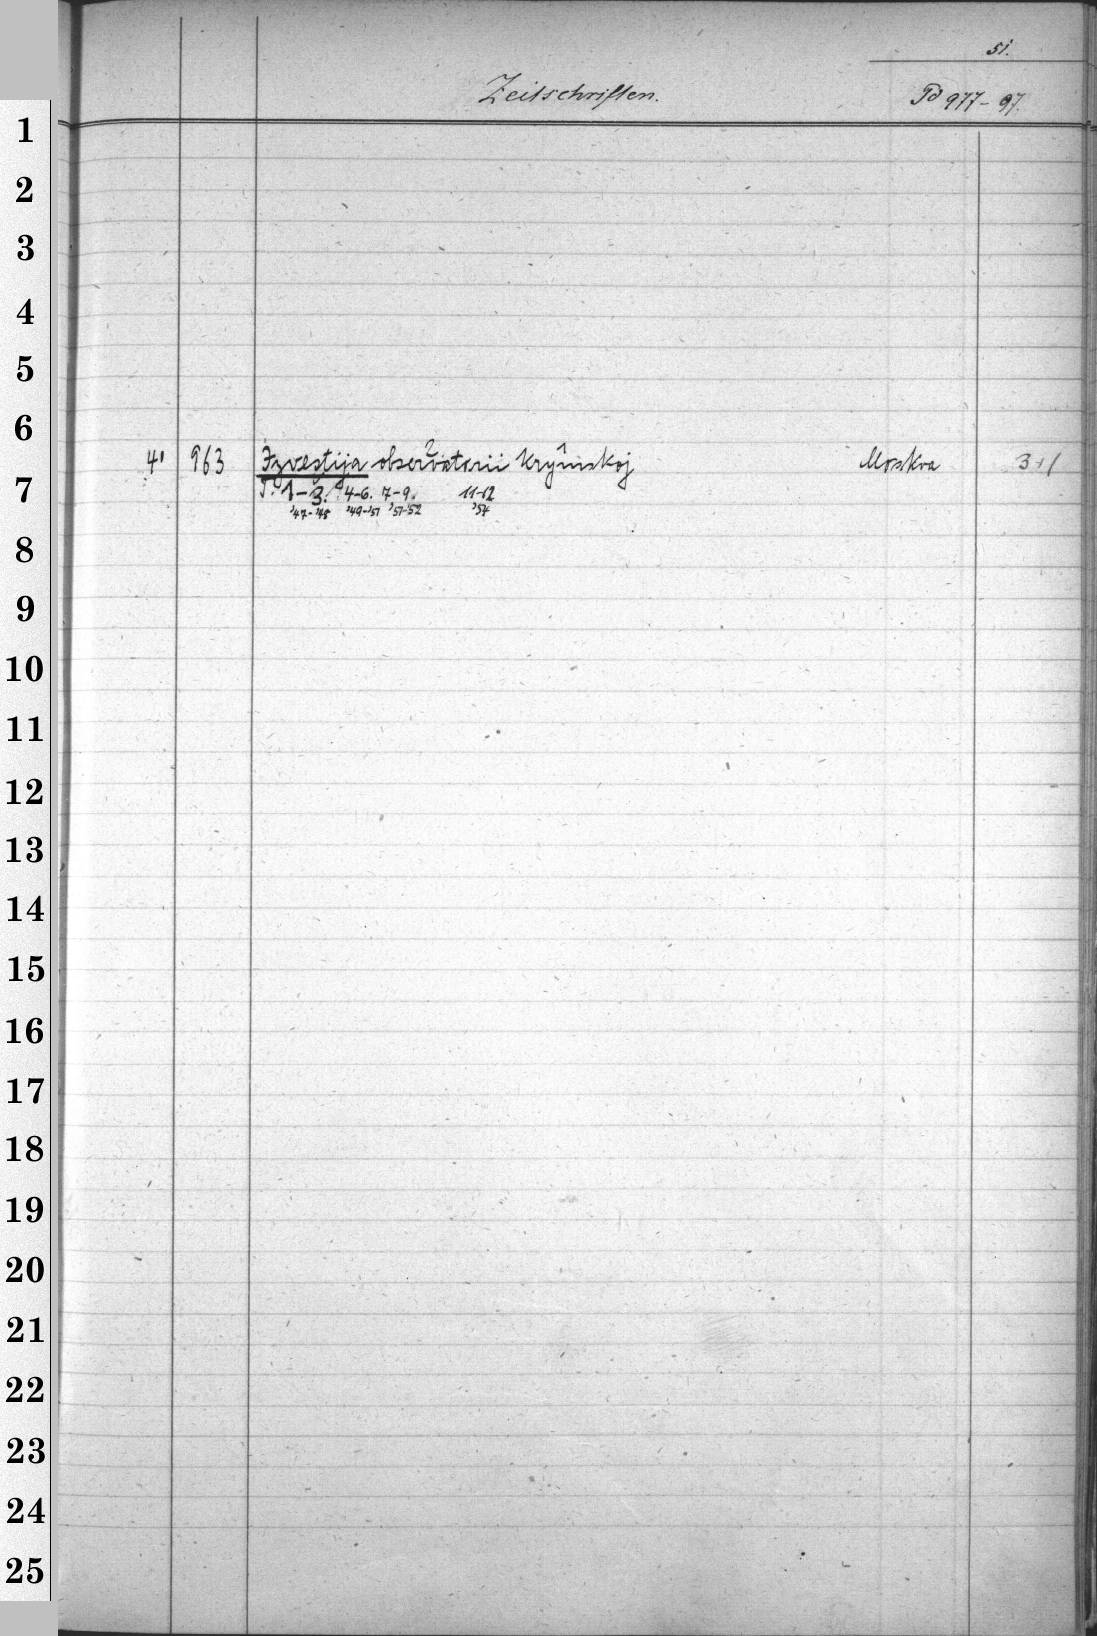 51.
Zeitschriften. Pd 977-97.
1
2
3
4
5
6
4° 963 Izvestija observatorii krymskoj Moskva 3+1
7
T. 1-3. 4-6. 7-9. 11-12
'47-'48 '49-'51 '51-'52 '54
8
9
10
11
12
13
14
15
16
17
18
19
20
21
22
23
24
25